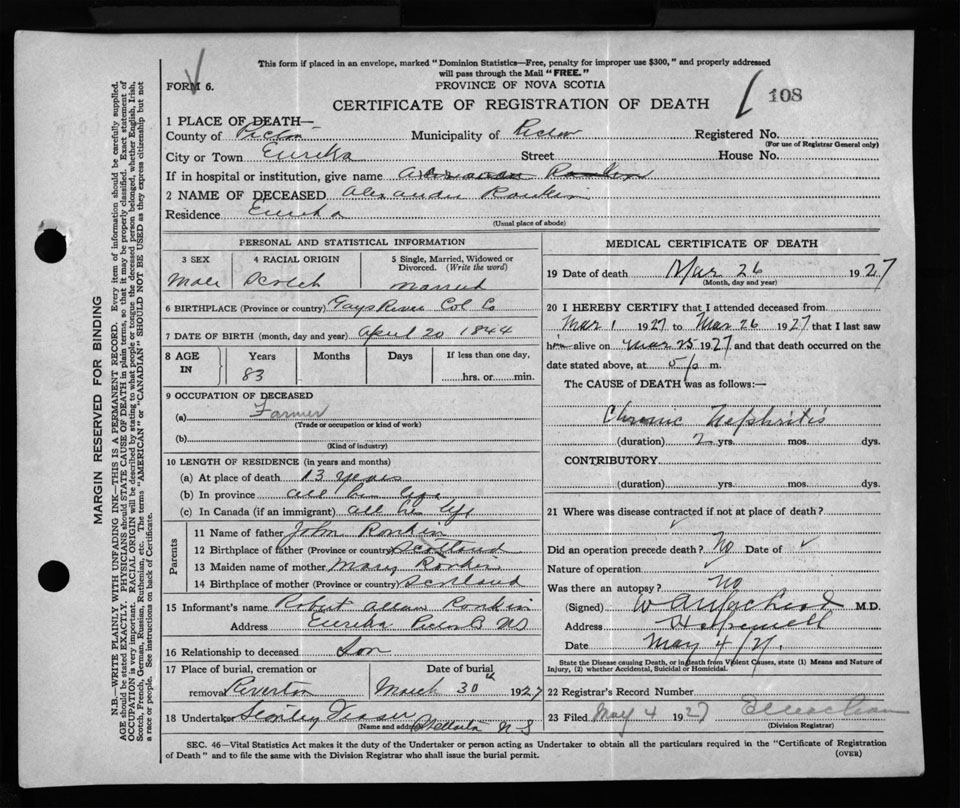 This form if placed in an envelope, marked "Dominion Statistics—Free, penalty for improper use $300," and properly addressed
will pass through the Mail "FREE."
FORM 6.
PROVINCE OF NOVA SCOTIA
CERTIFICATE OF REGISTRATION OF DEATH
108
1 PLACE OF DEATH—
County of Pictou Municipality of Pictou Registered No.
(For use of Registrar General only)
City or Town Eureka Street House No.
If in hospital or institution, give name Rankin
2 NAME OF DECEASED Alexander Rankin
Residence Eureka
(Usual place of abode)
PERSONAL AND STATISTICAL INFORMATION
3 SEX 4 RACIAL ORIGIN 5 Single, Married, Widowed or Divorced. (Write the word)
Male Scotch Married
6 BIRTHPLACE (Province or country) Gays River Col Co
7 DATE OF BIRTH (month, day and year) April 20 1844
8 AGE IN Years Months Days If less than one day,
83 hrs. or min.
9 OCCUPATION OF DECEASED
(a) Farmer
(Trade or occupation or kind of work)
(b)
(Kind of industry)
10 LENGTH OF RESIDENCE (in years and months)
(a) At place of death 13 years
(b) In province all his life
(c) In Canada (if an immigrant) all his life
Parents
11 Name of father John Rankin
12 Birthplace of father (Province or country) Scotland
13 Maiden name of mother Mary Rankin
14 Birthplace of mother (Province or country) Scotland
15 Informant's name Robert Allan Rankin
Address Eureka Pictou Co NS
16 Relationship to deceased Son
17 Place of burial, cremation or Date of burial
removal Riverton March 30th 1927
18 Undertaker Fraser Stellarton N S
(Name and address)
MEDICAL CERTIFICATE OF DEATH
19 Date of death Mar 26 1927
(Month, day and year)
20 I HEREBY CERTIFY that I attended deceased from
Mar 1 1927 to Mar 26 1927 that I last saw
him alive on Mar 25 1927 and that death occurred on the
date stated above, at 5 p m.
The CAUSE OF DEATH was as follows:—
Chronic Nephritis
(duration) 2 yrs. mos. dys.
CONTRIBUTORY
(duration) yrs. mos. dys.
21 Where was disease contracted if not at place of death?
Did an operation precede death? No Date of
Nature of operation
Was there an autopsy? No
(Signed) M.D.
Address Hopewell
Date May 4/27.
State the Disease causing Death, or in death from Violent Causes, state (1) Means and Nature of
Injury, (2) whether Accidental, Suicidal or Homicidal.
22 Registrar's Record Number
23 Filed May 4 1927
(Division Registrar)
SEC. 46—Vital Statistics Act makes it the duty of the Undertaker or person acting as Undertaker to obtain all the particulars required in the "Certificate of Registration
of Death" and to file the same with the Division Registrar who shall issue the burial permit. (OVER)
MARGIN RESERVED FOR BINDING
N.B.—WRITE PLAINLY WITH UNFADING INK—THIS IS A PERMANENT RECORD. Every item of information should be carefully supplied.
AGE should be stated EXACTLY. PHYSICIANS should STATE CAUSE OF DEATH in plain terms, so that it may be properly classified. Exact statement of
OCCUPATION is very important. RACIAL ORIGIN will be described by stating to what people or tongue the deceased person belonged, whether English, Irish,
Scotch, French, German, Russian, Ruthenian, etc. The terms "AMERICAN" or "CANADIAN" SHOULD NOT BE USED as they express citizenship but not
a race or people. See instructions on back of Certificate.